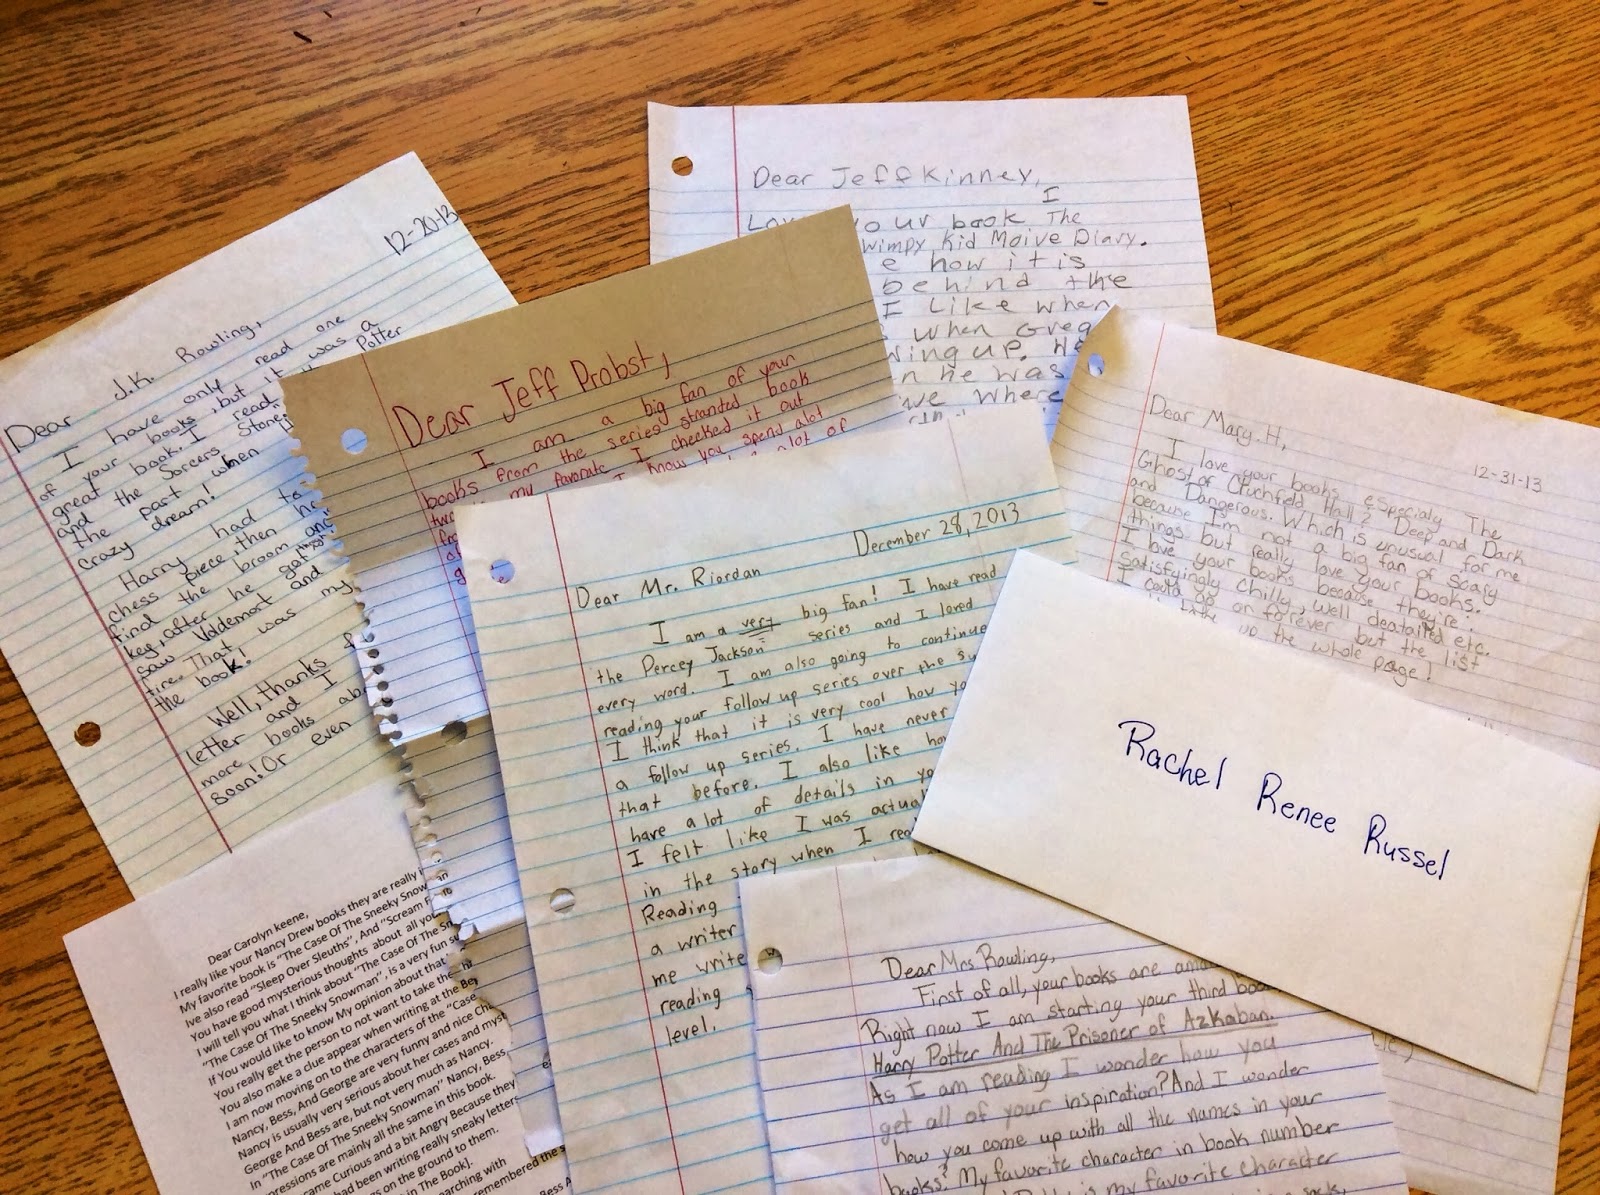 12-20-13
Dear J.K. Rowling,
I have only read one
of your books, but it was a
great book. I read Potter
and the Sorcers Stone
the part when
crazy dream!
Harry had to
chess piece, then
find the broom and
key, after he got
saw Voldemort and
fire. That was my
the book!
Well, thanks
letter and I
more books
soon! Or even
Dear Jeff Probst,
I am a big fan of your
books from the series stranded book
my favorate I checked it out
I know you spend alot
a lot of
Dear Jeff Kinney,
I
your book The
Wimpy Kid Moive Diary.
how it is
behind the
I Like when
when Greg
up.
he was
where
Dear Mary. H,
12-31-13
I love your books especialy The
Ghost of Cruchfeld Hall & Deep and Dark
and Dangerous. Which is unusual for me
because I'm not a big fan of scary
things but really love your books.
I love your books because they're:
satisfyingly chilly, well deatailed etc.
I could go on forever but the list
up the whole page!
December 28, 2013
Dear Mr. Riordan
I am a very big fan! I have read
the Percey Jackson series and I loved
every word. I am also going to continue
reading your follow up series over the
I think that it is very cool how
a follow up series. I have never
that before. I also like
have a lot of details in
I felt like I was
in the story when I
Reading
a writer
me write
reading
level.
Rachel Renee Russel
Dear Carolyn keene,
I really like your Nancy Drew books they are really
My favorite book is "The Case Of The Sneeky
Ive also read "Sleep Over Sleuths", And "Scream
You have good mysterious thoughts about all
I will tell you what I think about "The Case Of The
"The Case Of The Sneeky Snowman", is a very fun
If You would like to know My opinion about that
You really get the person to not want to take the
You also make a clue appear when writing at the
I am now moving on to the characters of the "Case
Nancy, Bess, And George are very funny and nice
Nancy is usually very serious about her cases and
George And Bess are, but not very much as Nancy.
In "The Case Of The Sneeky Snowman" Nancy, Bess
are mainly all the same in this book.
Curious and a bit Angry Because they
had been writing really sneaky
on the ground to them.
in The Book].
with
remembered the
Dear Mrs Rowling,
First of all, your books are
Right now I am starting your third
Harry Potter And The Prisoner of Azkaban.
As I am reading I wonder how you
get all of your inspiration? And I wonder
how you come up with all the names in your
books? My favorite character in book number
is my favorite character